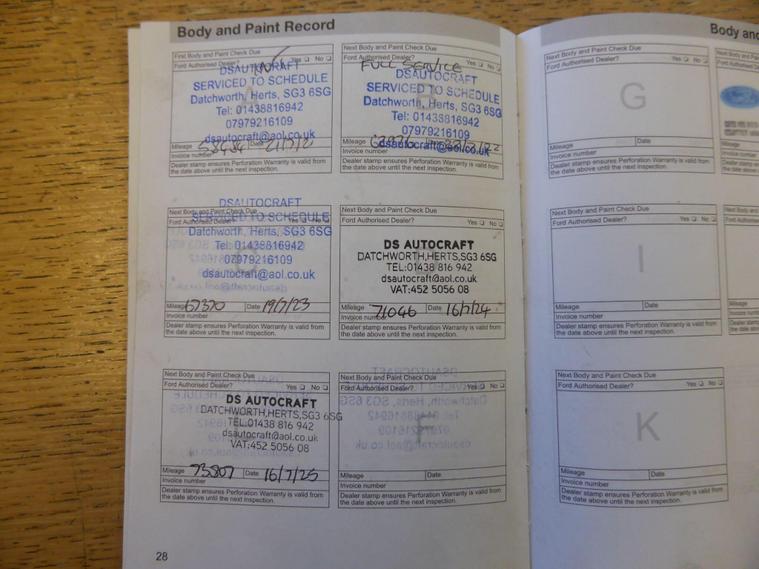 Body and Paint Record
First Body and Paint Check Due
Ford Authorised Dealer? Yes No
DSAUTOCRAFT
SERVICED TO SCHEDULE
Datchworth, Herts, SG3 6SG
Tel: 01438816942
07979216109
dsautocraft@aol.co.uk
Mileage 58484 Date
Invoice number
Dealer stamp ensures Perforation Warranty is valid from
the date above until the next inspection.
Next Body and Paint Check Due
Ford Authorised Dealer? Yes No
FULL SERVICE
DSAUTOCRAFT
SERVICED TO SCHEDULE
Datchworth, Herts, SG3 6SG
Tel: 01438816942
07979216109
dsautocraft@aol.co.uk
Mileage
Invoice number
Dealer stamp ensures Perforation Warranty is valid from
the date above until the next inspection.
DSAUTOCRAFT
Next Body and Paint Check Due
SERVICED TO SCHEDULE
Ford Authorised Dealer? Yes No
Datchworth, Herts, SG3 6SG
Tel: 01438816942
07979216109
dsautocraft@aol.co.uk
Mileage 67370 Date 19/7/23
Invoice number
Dealer stamp ensures Perforation Warranty is valid from
the date above until the next inspection.
Next Body and Paint Check Due
Ford Authorised Dealer? Yes No
DS AUTOCRAFT
DATCHWORTH,HERTS,SG3 6SG
TEL:01438 816 942
dsautocraft@aol.co.uk
VAT:452 5056 08
Mileage 71046 Date 16/7/24
Invoice number
Dealer stamp ensures Perforation Warranty is valid from
the date above until the next inspection.
Next Body and Paint Check Due
Ford Authorised Dealer? Yes No
DS AUTOCRAFT
DATCHWORTH,HERTS,SG3 6SG
TEL:01438 816 942
dsautocraft@aol.co.uk
VAT:452 5056 08
Mileage 73807 Date 16/7/25
Invoice number
Dealer stamp ensures Perforation Warranty is valid from
the date above until the next inspection.
Next Body and Paint Check Due
Ford Authorised Dealer? Yes No
F
Mileage Date
Invoice number
Dealer stamp ensures Perforation Warranty is valid from
the date above until the next inspection.
28
Body and
Next Body and Paint Check Due
Ford Authorised Dealer? Yes No
G
Mileage Date
Invoice number
Dealer stamp ensures Perforation Warranty is valid from
the date above until the next inspection.
Next Body and Paint Check Due
Ford Authorised Dealer? Yes No
I
Mileage Date
Invoice number
Dealer stamp ensures Perforation Warranty is valid from
the date above until the next inspection.
Next Body and Paint Check Due
Ford Authorised Dealer? Yes No
K
Mileage Date
Invoice number
Dealer stamp ensures Perforation Warranty is valid from
the date above until the next inspection.